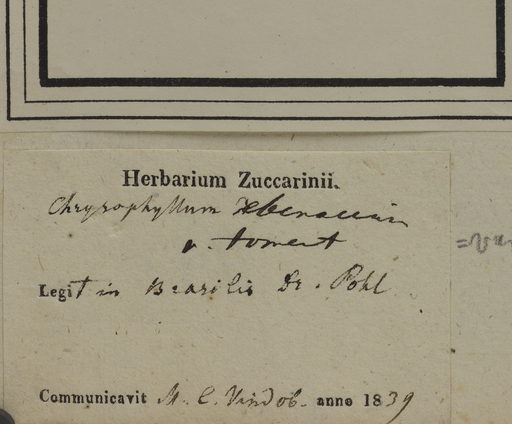 Herbarium Zuccarinii.
Chrysophyllum ebenaceum
v. toment
Legit in Brasilis Dr. Pohl
Communicavit M. C. Vindob. anno 1839